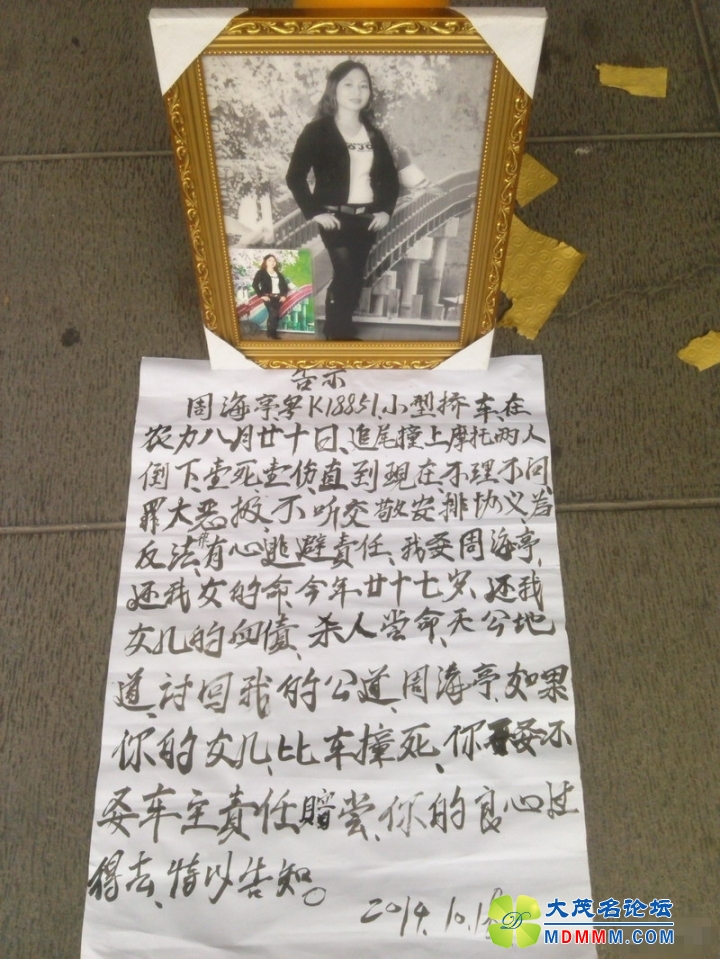 告示
周海亭粤K18851、小型挢车、在
农力八月廿十日、追尾撞上摩托两人
倒下、壹死壹伤直到現在不理不问、
罪大恶极、不听交敬安排协义、为
反法、有心逃避责任、我要周海亭、
还我女的命、今年廿十七岁、还我
女儿的血债、杀人尝命、天公地
道、讨回我的公道、周海亭、如果
你的女儿、比车撞死、你要不
要车主责任、赔尝、你的良心过
得去、特以告知。
2014.10.
大茂名论坛
MDMMM.COM